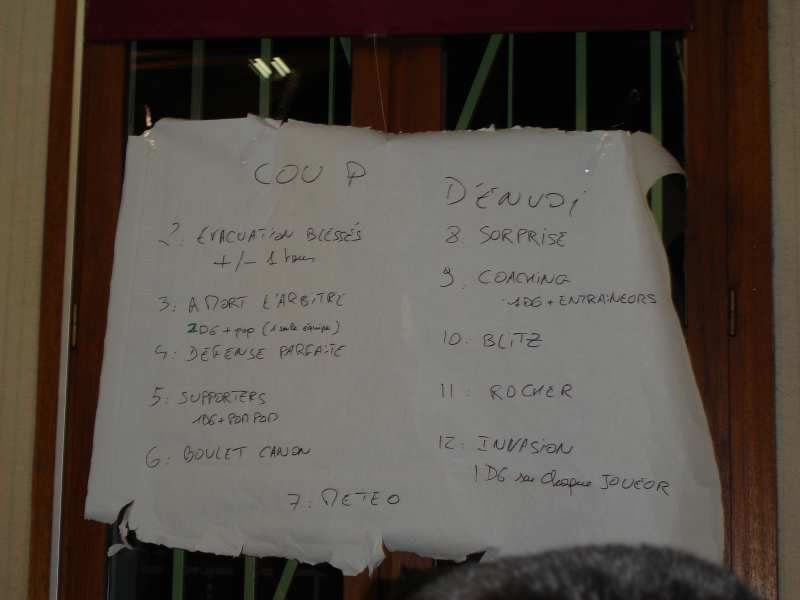 COUP D'ENVOI
2: EVACUATION BLESSÉS
+/- 1 tour
3: A MORT L'ARBITRE
2D6 + pop (1 seule équipe)
4: DÉFENSE PARFAITE
5: SUPPORTERS
1D6 + POMPOM
6: BOULET CANON
7: METEO
8: SURPRISE
9: COACHING
1D6 + ENTRAINEURS
10: BLITZ
11: ROCHER
12: INVASION
1D6 sur chaque JOUEUR